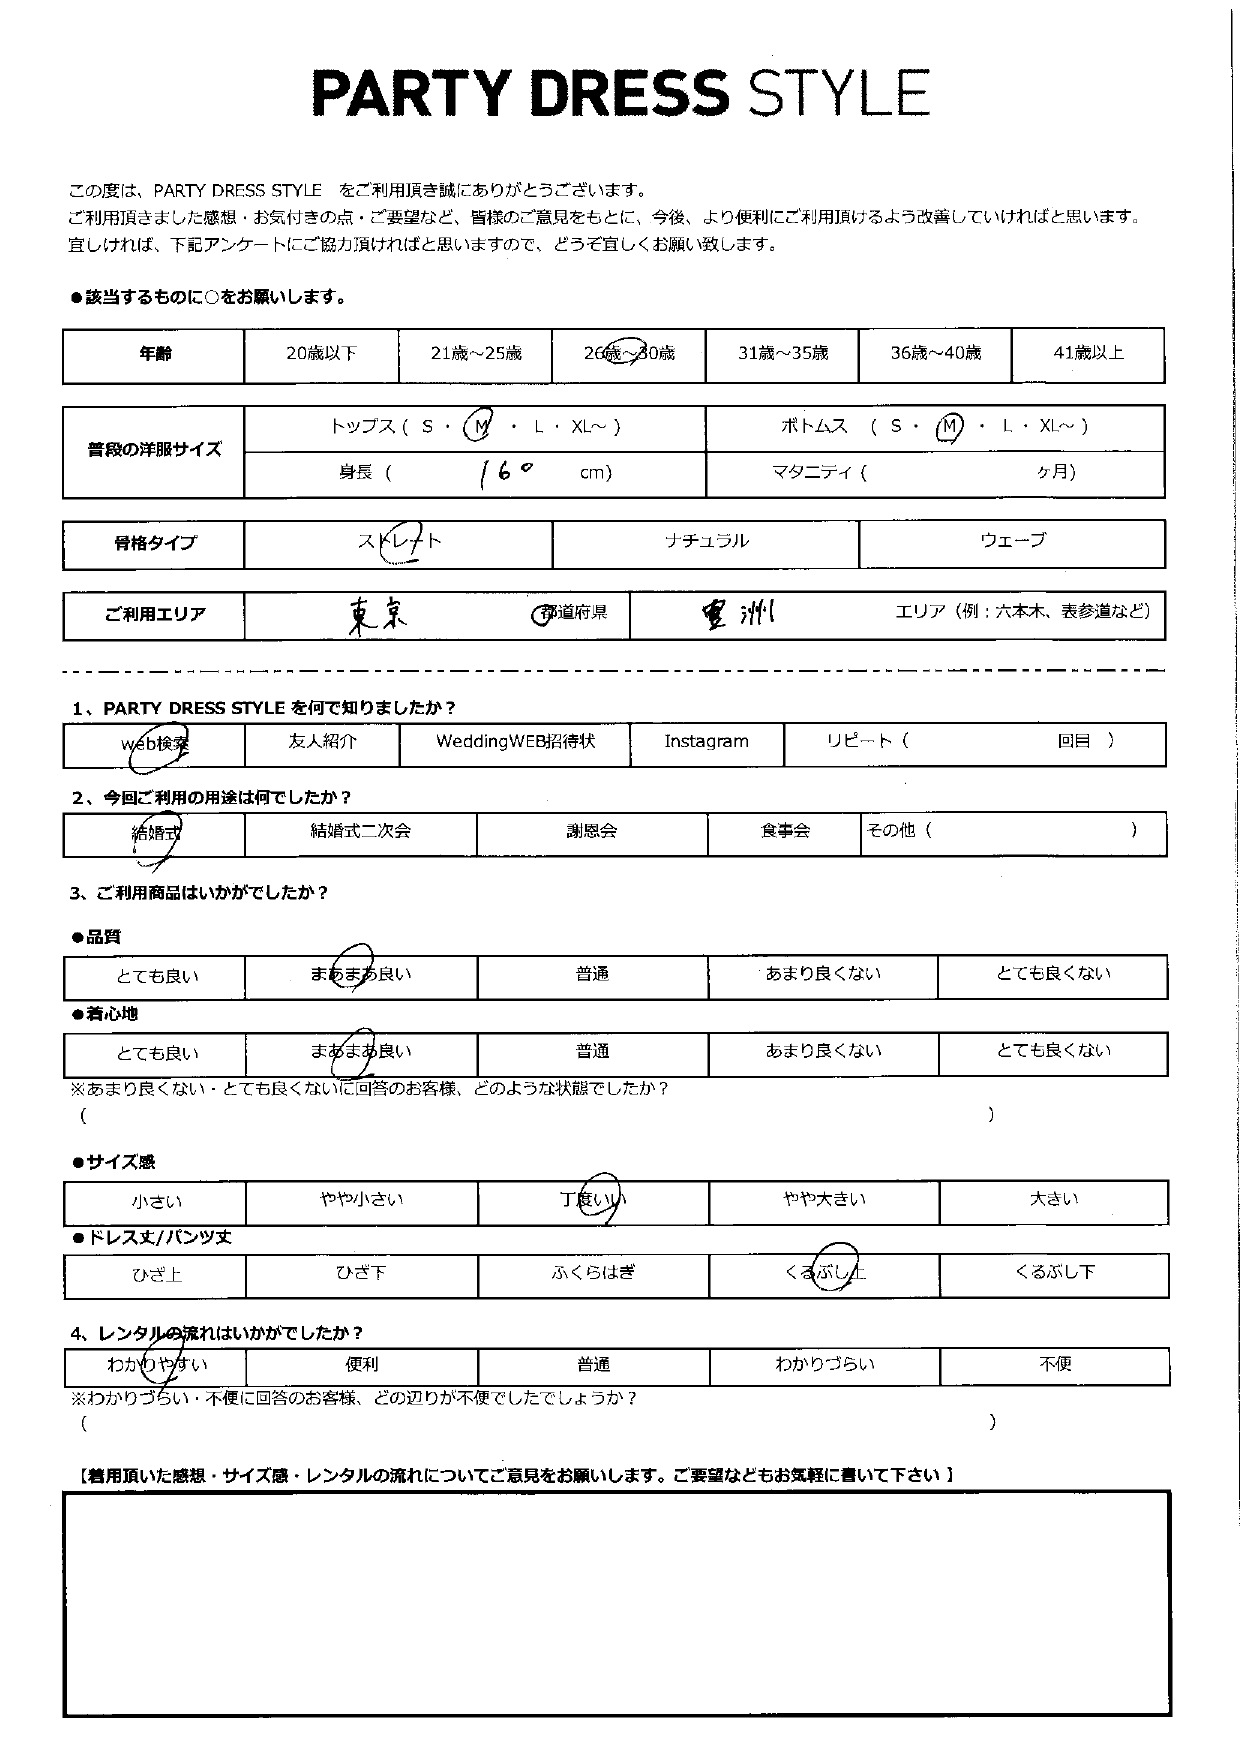 PARTY DRESS STYLE
この度は、PARTY DRESS STYLE をご利用頂き誠にありがとうございます。
ご利用頂きました感想・お気付きの点・ご要望など、皆様のご意見をもとに、今後、より便利にご利用頂けるよう改善していければと思います。
宜しければ、下記アンケートにご協力頂ければと思いますので、どうぞ宜しくお願い致します。
●該当するものに○をお願いします。
年齢 20歳以下 21歳～25歳 26歳～30歳 31歳～35歳 36歳～40歳 41歳以上
普段の洋服サイズ トップス ( S ・ M ・ L ・ XL～ ) ボトムス ( S ・ M ・ L ・ XL～ )
身長 ( 160 cm) マタニティ ( ヶ月)
骨格タイプ ストレート ナチュラル ウェーブ
ご利用エリア 東京 都道府県 豊洲 エリア（例：六本木、表参道など）
1、PARTY DRESS STYLE を何で知りましたか？
web検索 友人紹介 WeddingWEB招待状 Instagram リピート（ 回目 ）
2、今回ご利用の用途は何でしたか？
結婚式 結婚式二次会 謝恩会 食事会 その他（ ）
3、ご利用商品はいかがでしたか？
●品質
とても良い まあまあ良い 普通 あまり良くない とても良くない
●着心地
とても良い まあまあ良い 普通 あまり良くない とても良くない
※あまり良くない・とても良くないに回答のお客様、どのような状態でしたか？
（ ）
●サイズ感
小さい やや小さい 丁度いい やや大きい 大きい
●ドレス丈/パンツ丈
ひざ上 ひざ下 ふくらはぎ くるぶし上 くるぶし下
4、レンタルの流れはいかがでしたか？
わかりやすい 便利 普通 わかりづらい 不便
※わかりづらい・不便に回答のお客様、どの辺りが不便でしたでしょうか？
（ ）
【着用頂いた感想・サイズ感・レンタルの流れについてご意見をお願いします。ご要望などもお気軽に書いて下さい 】